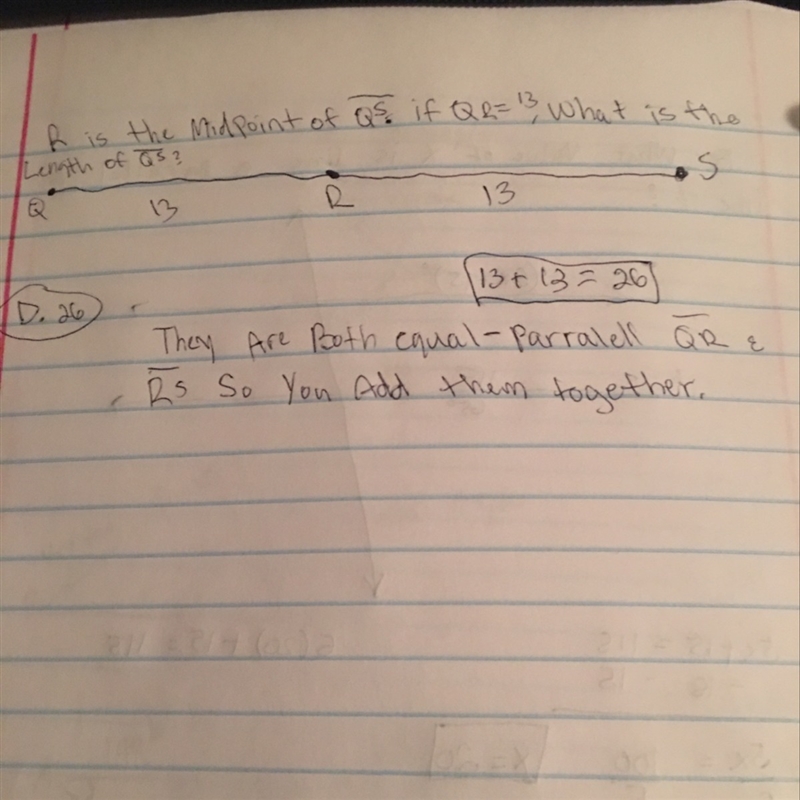 R is the Midpoint of QS. if QR=13, What is the
Length of QS?
Q 13 R 13 S
13 + 13 = 26
D. 26
They Are Both equal-Parralell QR &
RS So You Add them together.